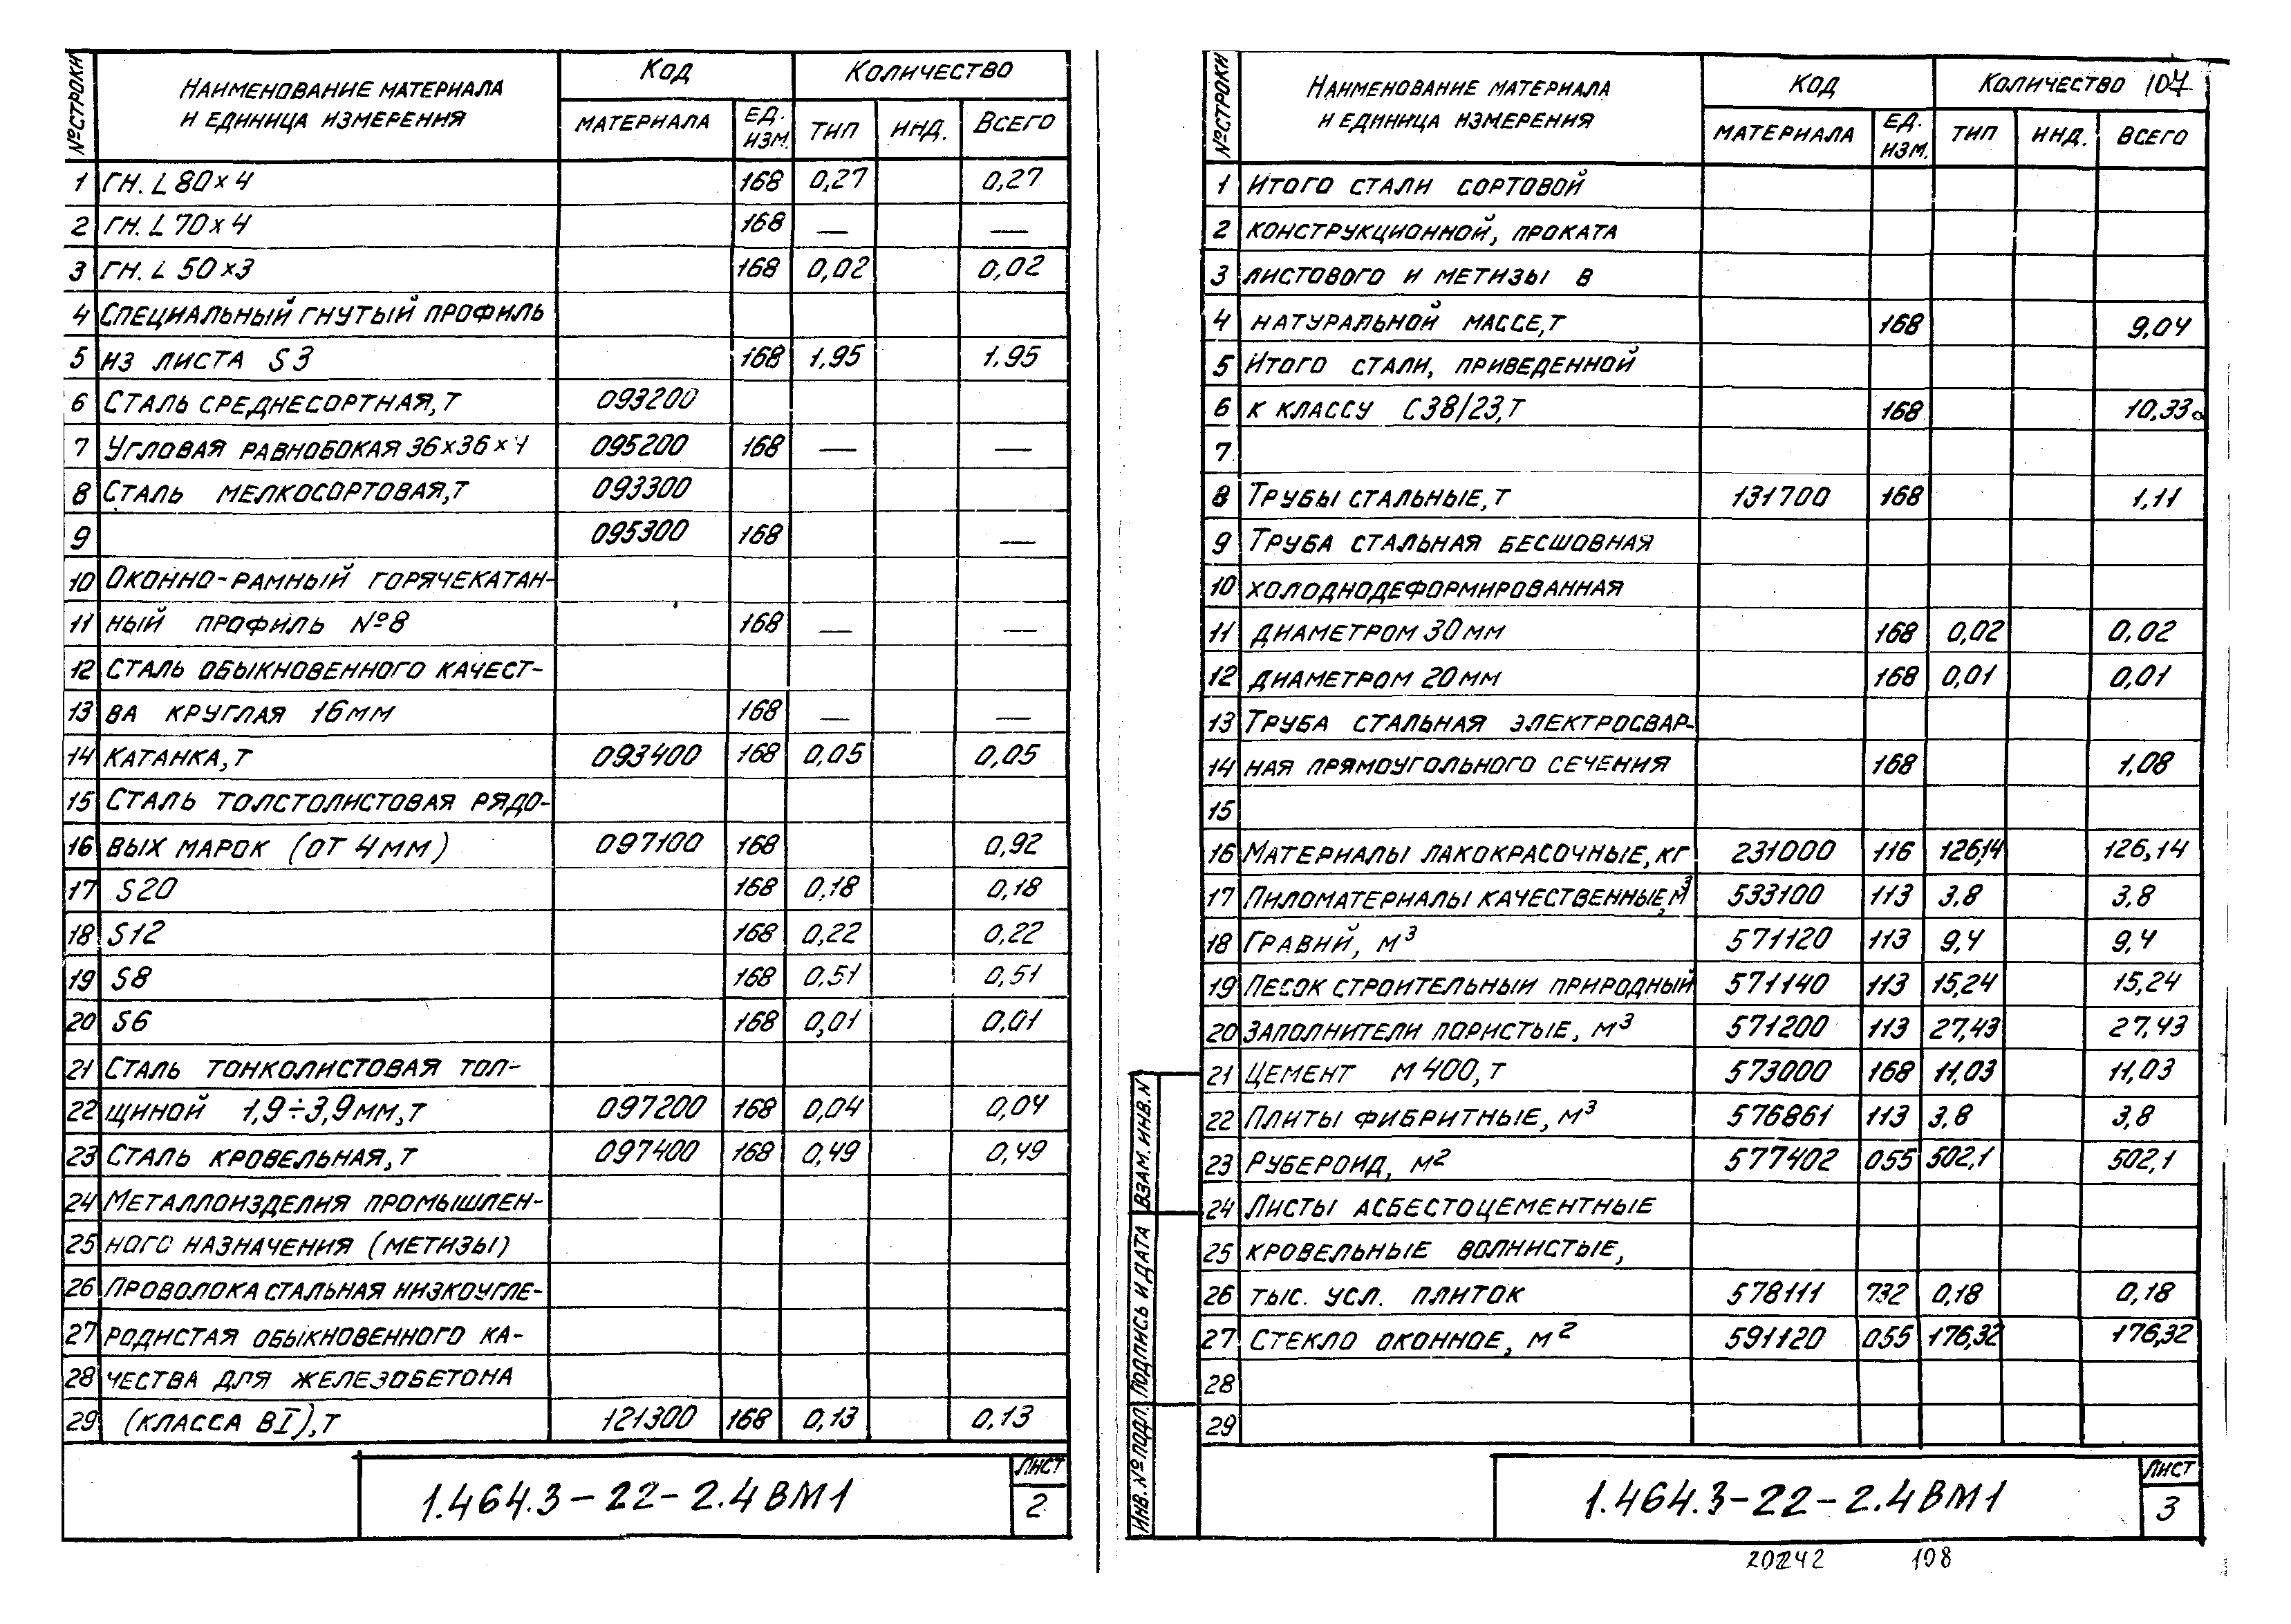 № СТРОКИ НАИМЕНОВАНИЕ МАТЕРИАЛА И ЕДИНИЦА ИЗМЕРЕНИЯ КОД КОЛИЧЕСТВО
МАТЕРИАЛА ЕД. ИЗМ. ТИП ИНД. ВСЕГО
1 ГН. L 80×4 168 0,27 0,27
2 ГН. L 70×4 168 — —
3 ГН. L 50×3 168 0,02 0,02
4 СПЕЦИАЛЬНЫЙ ГНУТЫЙ ПРОФИЛЬ
5 ИЗ ЛИСТА S3 168 1,95 1,95
6 СТАЛЬ СРЕДНЕСОРТНАЯ, Т 093200
7 УГЛОВАЯ РАВНОБОКАЯ 36×36×4 095200 168 — —
8 СТАЛЬ МЕЛКОСОРТОВАЯ, Т 093300
9 095300 168 —
10 ОКОННО-РАМНЫЙ ГОРЯЧЕКАТАН-
11 НЫЙ ПРОФИЛЬ №8 168 — —
12 СТАЛЬ ОБЫКНОВЕННОГО КАЧЕСТ-
13 ВА КРУГЛАЯ 16ММ 168 — —
14 КАТАНКА, Т 093400 168 0,05 0,05
15 СТАЛЬ ТОЛСТОЛИСТОВАЯ РЯДО-
16 ВЫХ МАРОК (ОТ 4ММ) 097100 168 0,92
17 S20 168 0,18 0,18
18 S12 168 0,22 0,22
19 S8 168 0,51 0,51
20 S6 168 0,01 0,01
21 СТАЛЬ ТОНКОЛИСТОВАЯ ТОЛ-
22 ЩИНОЙ 1,9÷3,9ММ, Т 097200 168 0,04 0,04
23 СТАЛЬ КРОВЕЛЬНАЯ, Т 097400 168 0,49 0,49
24 МЕТАЛЛОИЗДЕЛИЯ ПРОМЫШЛЕН-
25 НОГО НАЗНАЧЕНИЯ (МЕТИЗЫ)
26 ПРОВОЛОКА СТАЛЬНАЯ НИЗКОУГЛЕ-
27 РОДИСТАЯ ОБЫКНОВЕННОГО КА-
28 ЧЕСТВА ДЛЯ ЖЕЛЕЗОБЕТОНА
29 (КЛАССА ВI), Т 121300 168 0,13 0,13
1.464.3-22-2.4ВМ1 ЛИСТ 2
№ СТРОКИ НАИМЕНОВАНИЕ МАТЕРИАЛА И ЕДИНИЦА ИЗМЕРЕНИЯ КОД КОЛИЧЕСТВО 107
МАТЕРИАЛА ЕД. ИЗМ. ТИП ИНД. ВСЕГО
1 ИТОГО СТАЛИ СОРТОВОЙ
2 КОНСТРУКЦИОННОЙ, ПРОКАТА
3 ЛИСТОВОГО И МЕТИЗЫ В
4 НАТУРАЛЬНОЙ МАССЕ, Т 168 9,04
5 ИТОГО СТАЛИ, ПРИВЕДЕННОЙ
6 К КЛАССУ С38/23, Т 168 10,33
7
8 ТРУБЫ СТАЛЬНЫЕ, Т 131700 168 1,11
9 ТРУБА СТАЛЬНАЯ БЕСШОВНАЯ
10 ХОЛОДНОДЕФОРМИРОВАННАЯ
11 ДИАМЕТРОМ 30ММ 168 0,02 0,02
12 ДИАМЕТРОМ 20ММ 168 0,01 0,01
13 ТРУБА СТАЛЬНАЯ ЭЛЕКТРОСВАР-
14 НАЯ ПРЯМОУГОЛЬНОГО СЕЧЕНИЯ 168 1,08
15
16 МАТЕРИАЛЫ ЛАКОКРАСОЧНЫЕ, КГ 231000 116 126,14 126,14
17 ПИЛОМАТЕРИАЛЫ КАЧЕСТВЕННЫЕ, М³ 533100 113 3,8 3,8
18 ГРАВИЙ, М³ 571120 113 9,4 9,4
19 ПЕСОК СТРОИТЕЛЬНЫЙ ПРИРОДНЫЙ 571140 113 15,24 15,24
20 ЗАПОЛНИТЕЛИ ПОРИСТЫЕ, М³ 571200 113 27,43 27,43
21 ЦЕМЕНТ М400, Т 573000 168 11,03 11,03
22 ПЛИТЫ ФИБРИТНЫЕ, М³ 576861 113 3,8 3,8
23 РУБЕРОИД, М² 577402 055 502,1 502,1
24 ЛИСТЫ АСБЕСТОЦЕМЕНТНЫЕ
25 КРОВЕЛЬНЫЕ ВОЛНИСТЫЕ,
26 ТЫС. УСЛ. ПЛИТОК 578111 732 0,18 0,18
27 СТЕКЛО ОКОННОЕ, М² 591120 055 176,32 176,32
28
29
ИНВ. № ПОДЛ. ПОДПИСЬ И ДАТА ВЗАМ. ИНВ. N
1.464.3-22-2.4ВМ1 ЛИСТ 3
108